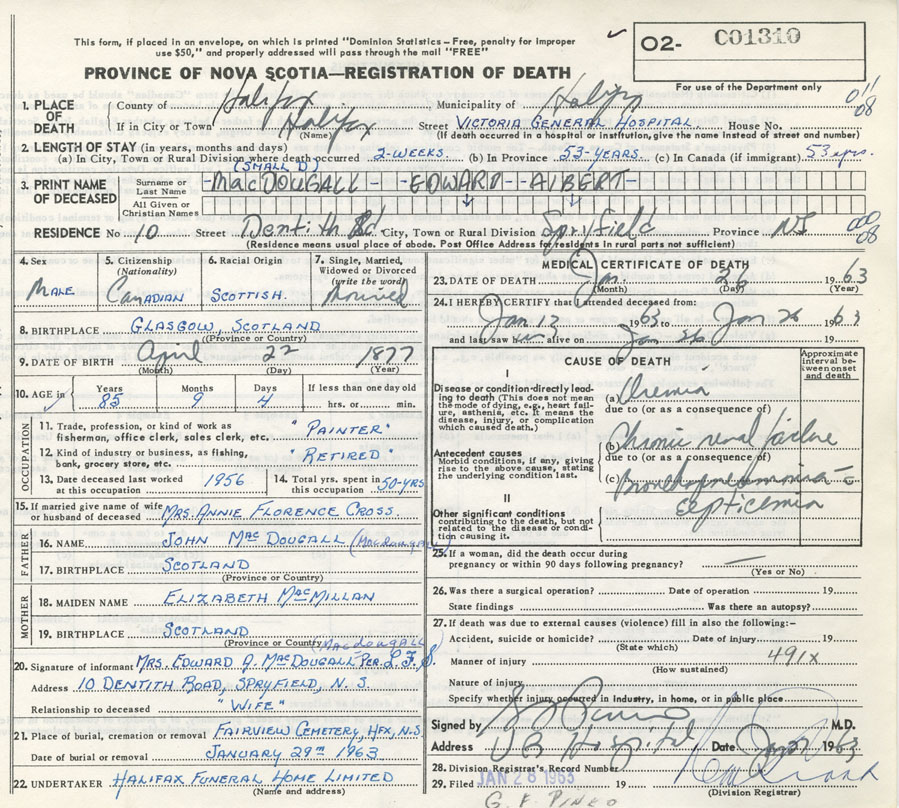 This form, if placed in an envelope, on which is printed "Dominion Statistics – Free, penalty for improper
use $50," and properly addressed will pass through the mail "FREE"
O2- C01310
For use of the Department only
PROVINCE OF NOVA SCOTIA—REGISTRATION OF DEATH
1. PLACE OF DEATH
County of Halifax Municipality of Halifax 011 08
If in City or Town Halifax (Name) Street VICTORIA GENERAL HOSPITAL. House No.
(If death occurred in a hospital or institution, give the name instead of street and number)
2. LENGTH OF STAY (in years, months and days)
(a) In City, Town or Rural Division where death occurred 2-WEEKS. (b) In Province 53-YEARS. (c) In Canada (if immigrant) 53 yrs.
(SMALL D)
3. PRINT NAME OF DECEASED
Surname or Last Name MacDOUGALL - EDWARD - ALBERT -
All Given or Christian Names
RESIDENCE No 10 Street Dentith Rd. City, Town or Rural Division Spryfield Province NS 08
(Residence means usual place of abode. Post Office Address for residents in rural parts not sufficient)
4. Sex
MALE
5. Citizenship (Nationality)
CANADIAN
6. Racial Origin
SCOTTISH.
7. Single, Married, Widowed or Divorced (write the word)
Married
8. BIRTHPLACE GLASGOW, SCOTLAND
(Province or Country)
9. DATE OF BIRTH April 22 1877
(Month) (Day) (Year)
10. AGE in Years 85 Months 9 Days 4 If less than one day old hrs. or min.
OCCUPATION
11. Trade, profession, or kind of work as fisherman, office clerk, sales clerk, etc. "PAINTER"
12. Kind of industry or business, as fishing, bank, grocery store, etc. "RETIRED"
13. Date deceased last worked at this occupation 1956
14. Total yrs. spent in this occupation 50-YRS
15. If married give name of wife or husband of deceased MRS. ANNIE FLORENCE CROSS.
FATHER
16. NAME JOHN MacDOUGALL (MacDougall)
17. BIRTHPLACE SCOTLAND
(Province or Country)
MOTHER
18. MAIDEN NAME ELIZABETH MacMILLAN
19. BIRTHPLACE SCOTLAND
(Province or Country)
(MacDOUGALL)
20. Signature of informant MRS. EDWARD A. MacDOUGALL PER. L.F.S.
Address 10 DENTITH ROAD, SPRYFIELD, N.S.
Relationship to deceased "WIFE"
21. Place of burial, cremation or removal FAIRVIEW CEMETERY, HFX, N.S
Date of burial or removal JANUARY 29TH 1963
22. UNDERTAKER HALIFAX FUNERAL HOME LIMITED
(Name and address)
MEDICAL CERTIFICATE OF DEATH
23. DATE OF DEATH Jan. 26 1963
(Month) (Day) (Year)
24. I HEREBY CERTIFY that I attended deceased from:
Jan 13 1963 to Jan 26 1963
and last saw him alive on Jan 26 19
CAUSE OF DEATH
Approximate interval between onset and death
I
Disease or condition directly leading to death (This does not mean the mode of dying, e.g., heart failure, asthenia, etc. It means the disease, injury, or complication which caused death.)
(a) Uremia
due to (or as a consequence of)
Antecedent causes
Morbid conditions, if any, giving rise to the above cause, stating the underlying condition last.
(b) Chronic renal failure
due to (or as a consequence of)
(c) Bronchopneumonia c̄
Septicemia
II
Other significant conditions
contributing to the death, but not related to the disease or condition causing it.
25. If a woman, did the death occur during pregnancy or within 90 days following pregnancy? —
(Yes or No)
26. Was there a surgical operation? Date of operation 19
State findings Was there an autopsy?
27. If death was due to external causes (violence) fill in also the following:-
Accident, suicide or homicide? Date of injury 19
(State which)
Manner of injury 491x
(How sustained)
Nature of injury
Specify whether injury occurred in industry, in home, or in public place
Signed by M.D.
Address VG Hospital Date Jan 27 1963
28. Division Registrar's Record Number
29. Filed JAN 28 1963 19
(Division Registrar)
G. F. PINEO